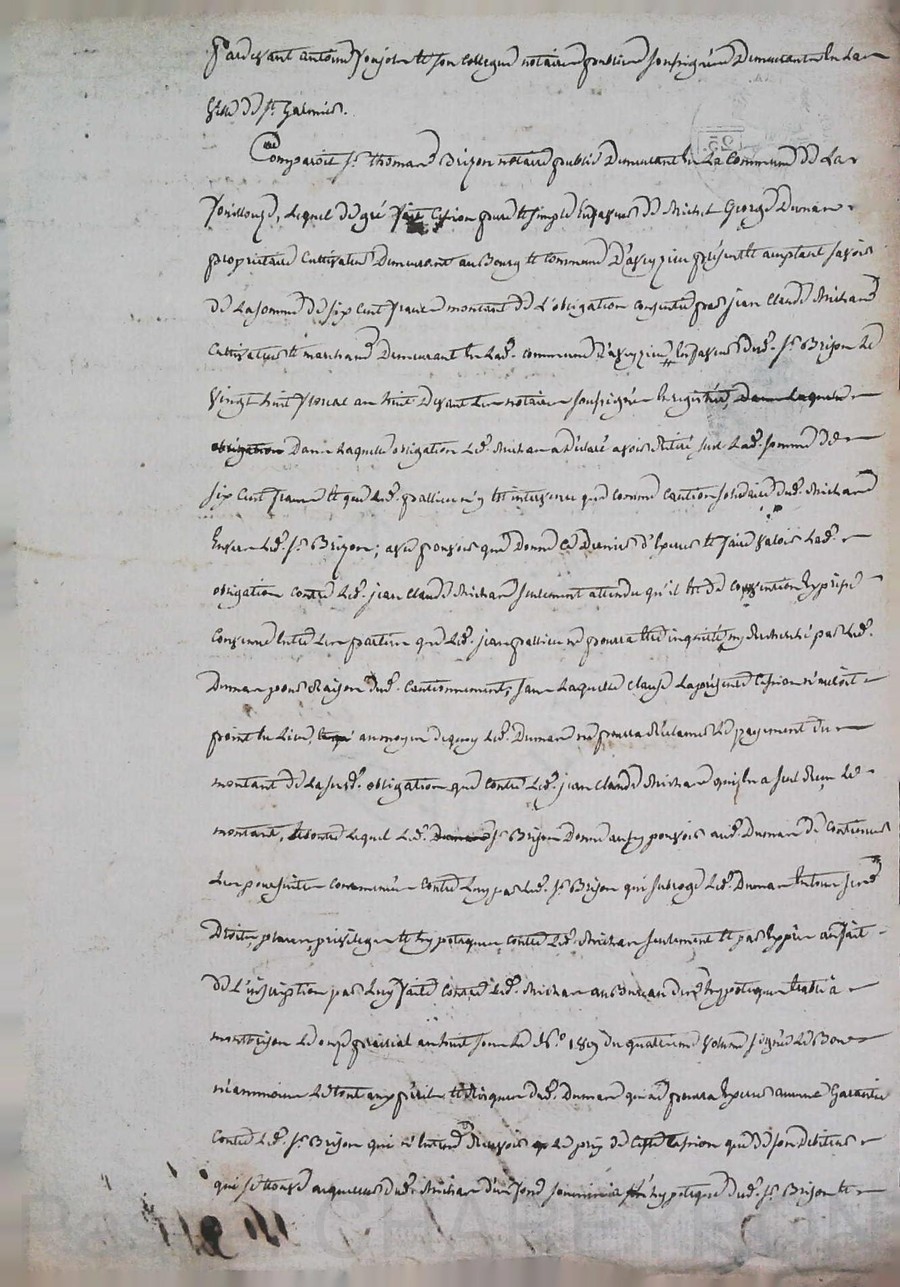 Pardevant antoine et son collegue notaires publics soussignés Demeurants en La
Ville de St. Galmier.
Comparoit Sr. thomas Brizon notaire public Demeurant en La Commune de La
fouillouze, lequel de gré fait Cession pure et simple En faveur de Michel George Dumas
proprietaire Cultivateur Demeurant au Bourg et Commune D'aveyzieu présent et acceptant savoir
de La somme de six Cent francs montant de L'obligation consentie par jean Claude Michard
Cultivateur et marchand Demeurant en Lad. commune D'aveyzieu, En faveur Dud. Sr. Brizon Le
Vingt huit floreal an huit Devant Les notaires soussignés Enregistrée, Dans Laquelle
obligation Dans Laquelle obligation Led. Michard a Déclaré avoir Retiré seul Lad. somme de
six Cent francs et que Led. pallieu n'y est intervenu que comme caution solidaire dud. Michard
Envers Led. Sr. Brizon; avec pouvoir que Donne Ce Dernier d'Exercer et faire valoir Lad.
obligation contre Led. jean Claude Michard seulement attendu qu'il est de convention Expresse
Convenue Entre Les parties que Led. jean pallieu ne pourra être inquiété ny Recherché par Led.
Dumas pour Raison dud. Cautionnement, sans Laquelle Clause La présente Cession n'auroit
point eu Lieu, au moyen de quoy Led. Dumas ne pourra Réclamer Le payement du
montant de La susd. obligation que contre Led. jean Claude Michard qui en a seul Reçu Le
montant, et contre Lequel Led. Dumas Sr. Brizon Donne aussy pouvoir aud. Dumas de Continuer
Les poursuites commencées contre Luy par Led. Sr. Brizon qui subroge Led. Dumas En tous ses
Droits, places, privileges et hypoteques contre Led. Michard seulement et par Exprès au fait
de L'inscription par Luy faite contre Led. Michard au Bureau des hypoteques Etabli à
montbrison Le onze prairial an huit sous Le No. 189 du quatrieme volume signé Le Bon
néanmoins Le tout aux périls et Risques dud. Dumas qui ne pourra Exercer aucune Garantie
Contre Led. Sr. Brizon qui n'Entend Recevoir Le prix de Cette Cession que de son Debiteur
qui se trouve acquereur dud. Michard d'un fond soumis à hypoteque dud. Sr. Brizon et